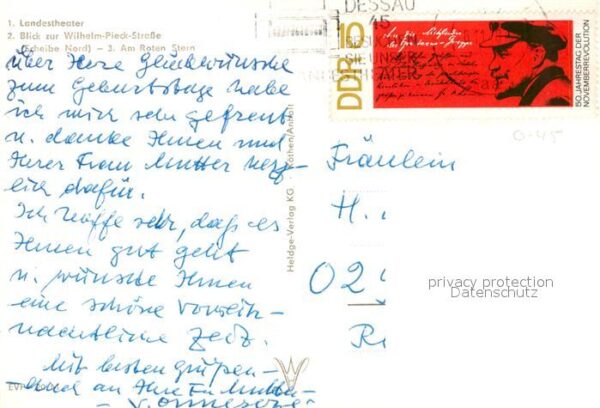 1. Landestheater
2. Blick zur Wilhelm-Pieck-Straße
(Scheibe Nord) - 3. Am Roten Stern
über Ihre Glückwünsche
zum Geburtstage habe
ich mich sehr gefreut
u. danke Ihnen und
Ihrer Frau Mutter herz-
lich dafür.
Ich hoffe sehr, daß es
Ihnen gut geht
u. wünsche Ihnen
eine schöne vorweih-
nachtliche Zeit.
Mit besten Grüßen
auch an Ihre Fr. Mutter
Heldge-Verlag KG
Köthen/Anhalt
DESSAU
45
BESUCHEN
SIE UNSER
LANDESTHEATER
10
DDR
50. JAHRESTAG DER
NOVEMBERREVOLUTION
0-45
Fräulein
H.
02
privacy protection
Datenschutz